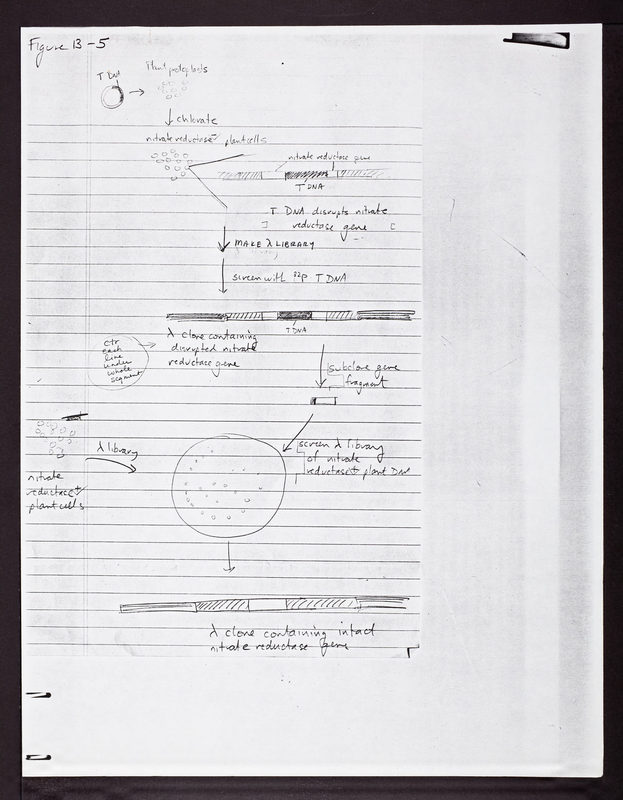 Figure 13-5
T DNA
Plant protoplasts
chlorate
nitrate reductase⁻ plant cells
nitrate reductase gene
T DNA
T DNA disrupts nitrate
reductase gene
MAKE λ LIBRARY
screen with ³²P T DNA
T DNA
λ clone containing
disrupted nitrate
reductase gene
ctr
each
line
under
whole
segment
subclone gene
fragment
λ library
nitrate
reductase⁺
plant cells
screen λ library
of nitrate
reductase⁺ plant DNA
λ clone containing intact
nitrate reductase gene